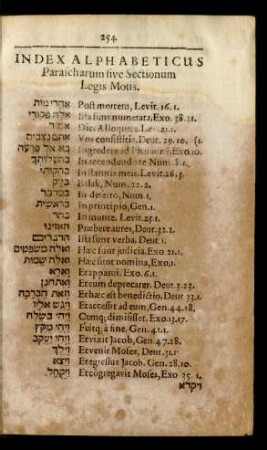 254
INDEX ALPHABETICUS
Parascharum sive Sectionum
Legis Mosis.
אחרי מות Post mortem, Levit. 16. 1.
אלה פקודי Ista sunt numerata, Exo. 38. 21.
אמור Dic, Alloquere Lev. 21. 1.
אתם נצבים Vos consistitis, Deut. 29. 10. (1.
בא אל פרעה Ingredere ad Pharaonem, Exo. 10.
בהעלותך In accendendo te Num. 8. 1.
בחקותי In statutis meis. Levit. 26. 3.
בלק Balak, Num. 22. 2.
במדבר In deserto, Num. 1.
בראשית In principio, Gen. 1.
בהר In monte. Levit. 25. 1.
האזינו Præbete aures, Deut. 32. 1.
הדברים Ista sunt verba. Deut. 1.
ואלה משפטים Hæc sunt judicia, Exo. 21. 1.
ואלה שמות Hæc sunt nomina, Exo. 1.
וארא Et apparui. Exo. 6. 1.
ואתחנן Et cum deprecarer. Deut. 3. 23.
וזאת הברכה Et hæc est benedictio. Deut. 33. 1.
ויגש אליו Et accessit ad eum, Gen. 44. 18.
ויהי בשלח Cumq; dimisisset. Exo. 13. 17.
ויהי מקץ Fuitq; a fine. Gen. 41. 1.
ויחי יעקב Et vixit Jacob, Gen. 47. 28.
וילך Et venit Moses, Deut. 31. 1.
ויצא Et egressus Jacob. Gen. 28. 10.
ויקהל Et congregavit Moses, Exo 35. 1.
ויקרא